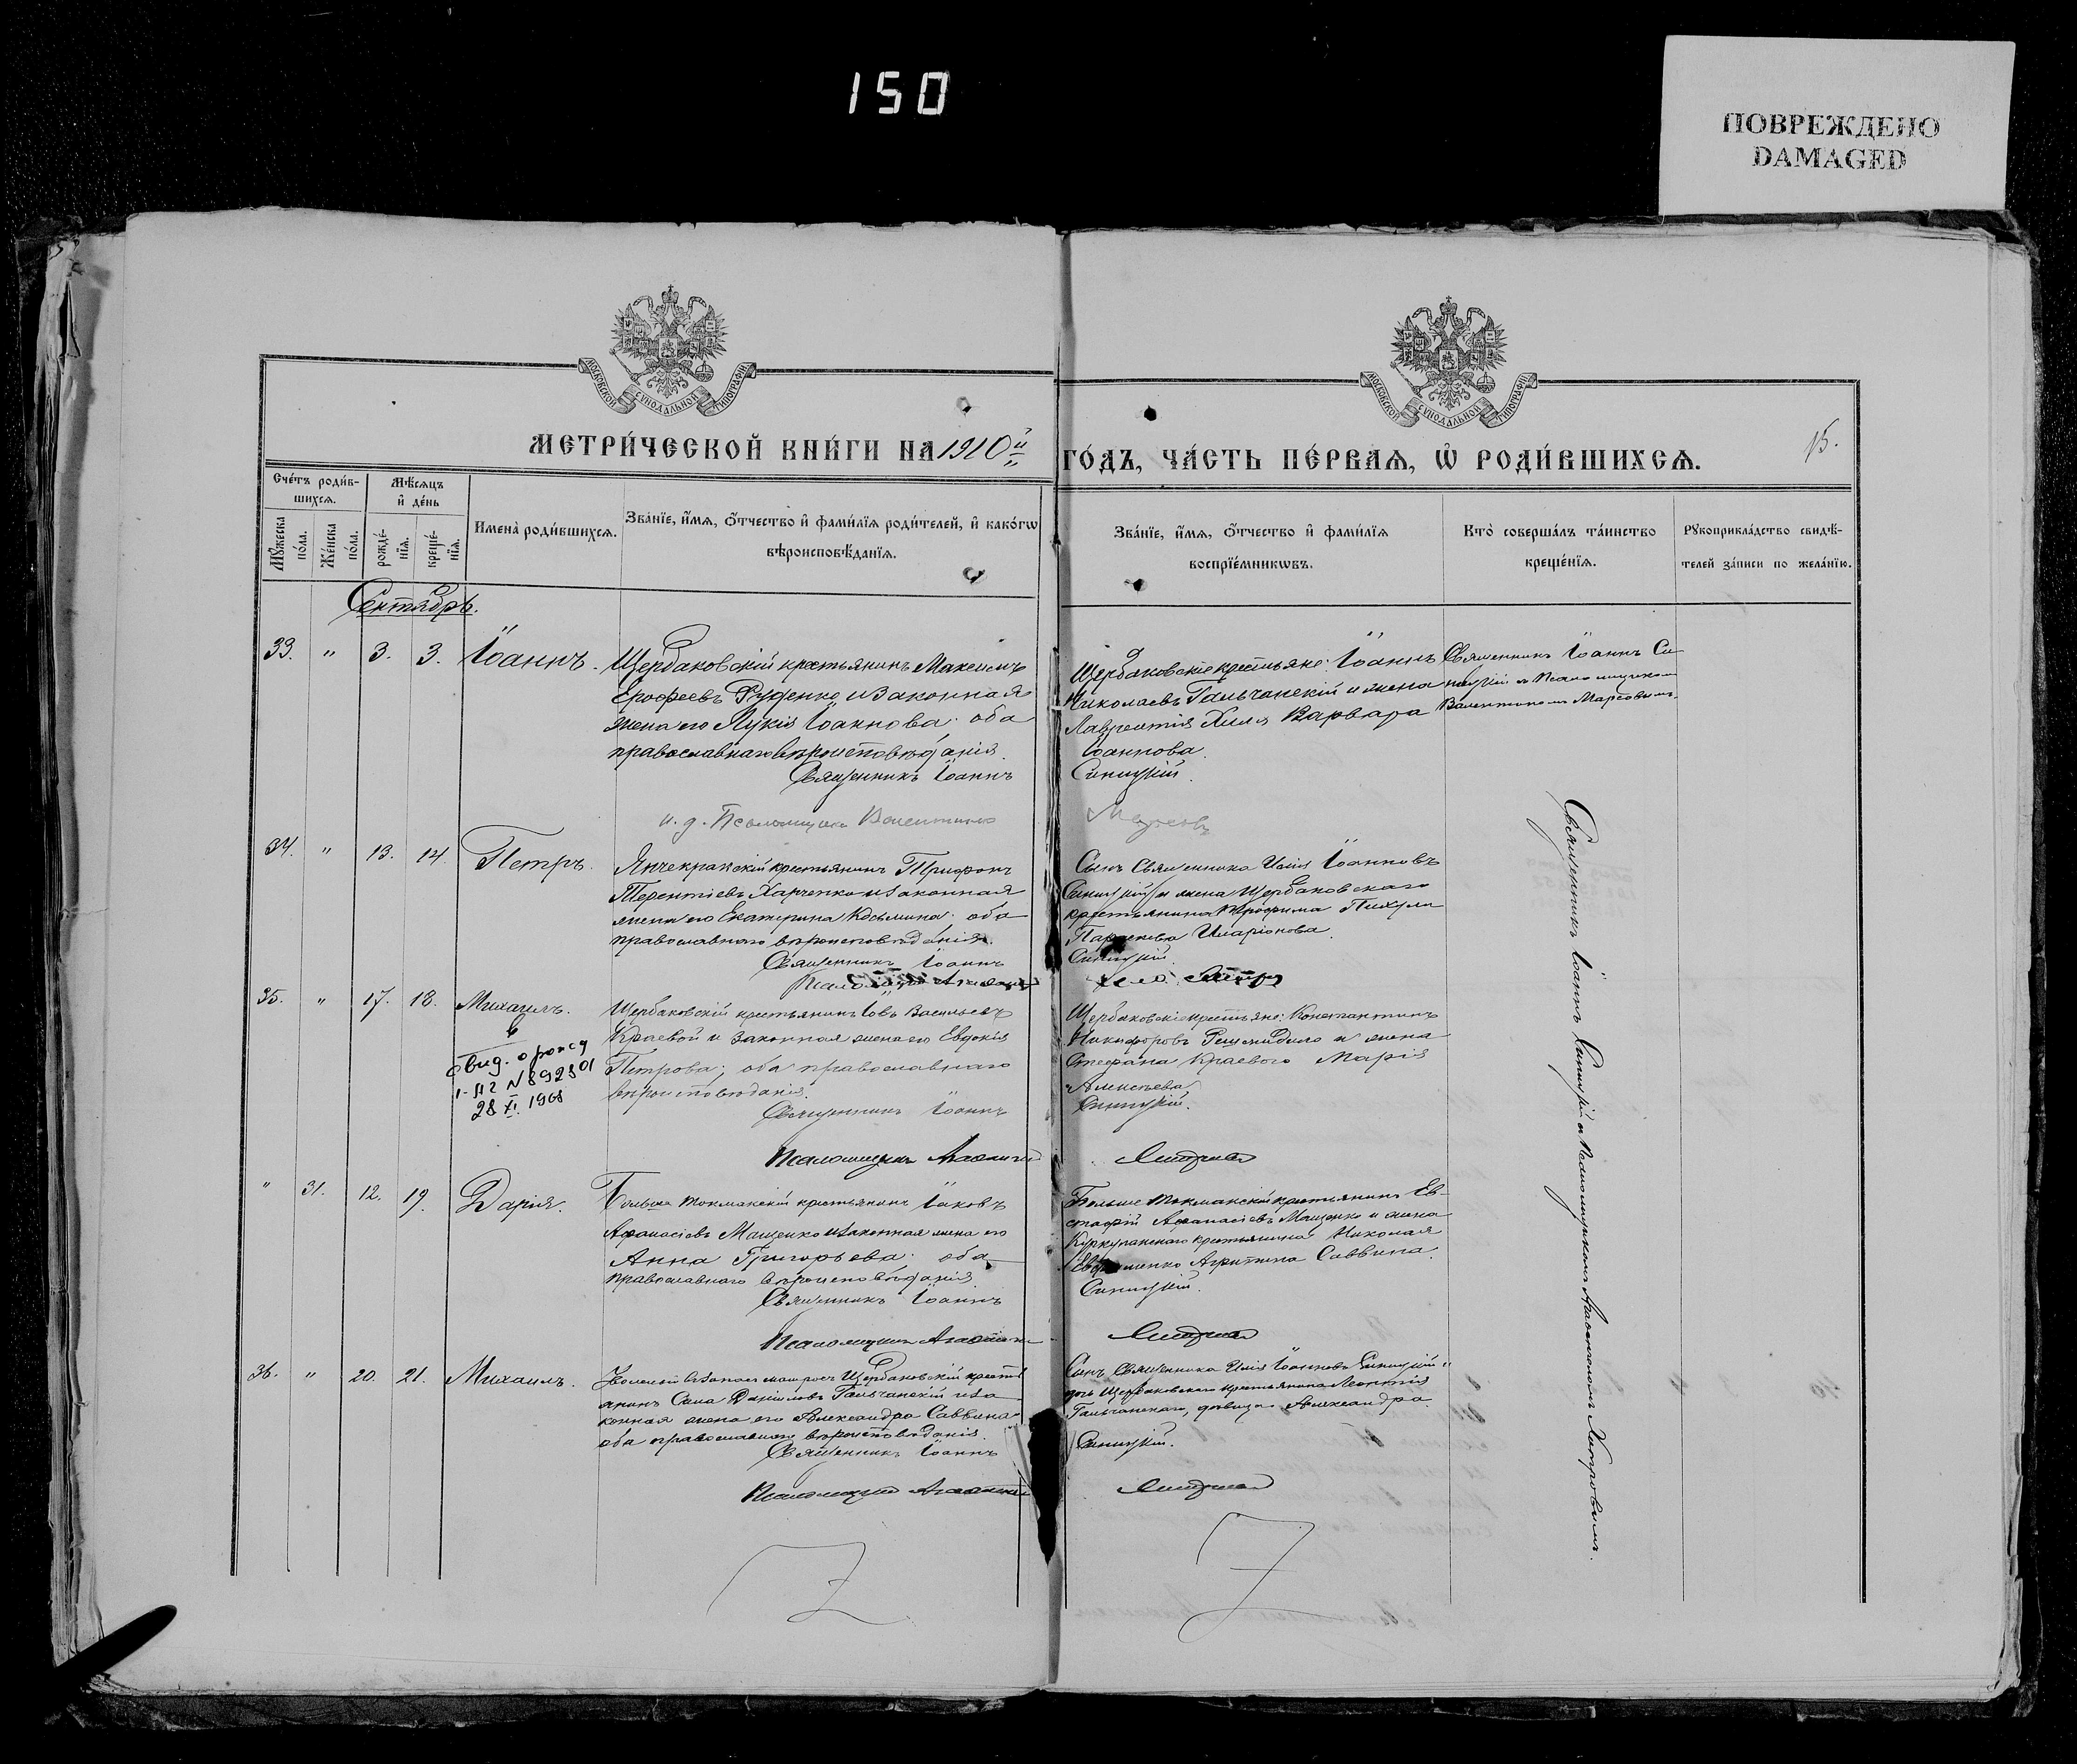 150
ПОВРЕЖДЕНО
DAMAGED
МОСКОВСКОЙ СѴНОДАЛЬНОЙ ТИПОГРАФІИ
МОСКОВСКОЙ СѴНОДАЛЬНОЙ ТИПОГРАФІИ
МЕТРИ́ЧЕСКОЙ КНИ́ГИ НА 1910й
ГО́ДЪ, ЧА́СТЬ ПЕ́РВАѦ, Ѡ҆ РОДИ́ВШИХСѦ.
15.
Сче́тъ роди́в-
шихсѧ.
Мѣсѧцъ
и҆ де́нь
Мꙋ́жеска
по́ла.
Же́нска
по́ла.
рожде́-
нїѧ.
креще́-
нїѧ.
Имена̀ роди́вшихсѧ.
Зва́нїе, и҆́мѧ, ѻ҆́тчество и҆ фами́лїѧ роди́телей, и҆ како́гѡ
вѣроисповѣ́данїѧ.
Зва́нїе, и҆́мѧ, ѻ҆́тчество и҆ фами́лїѧ
воспрїе́мникѡвъ.
Кто̀ соверша́лъ та́инство
креще́нїѧ.
Рꙋкоприкла́дство свидѣ́-
телей за́писи по жела́нїю.
Сентябрь.
33. " 3. 3. Іоаннъ.
Щербаковскій крестьянинъ Максимъ
Ерофеевъ Руденко и законная
жена его Лукія Іоаннова: оба
православнаго вѣроисповѣданія.
Священникъ Іоаннъ
и. д. Псаломщика Валентинъ
Щербаковскіе крестьяне: Іоаннъ
Николаевъ Гальчанскій и жена
Лаврентія Хиля Варвара
Іоаннова.
Синицкій.
Священникъ Іоаннъ Си-
ницкій и Псаломщикомъ
Валентиномъ
34. " 13. 14. Петръ.
Янчекракскій крестьянинъ Трифонъ
Терентіевъ Харченко и законная
жена его Екатерина Косьмина: оба
православнаго вѣроисповѣданія.
Священникъ Іоаннъ
Сынъ Священника Илія Іоанновъ
Синицкій и жена Щербаковскаго
крестьянина Трофима
Параскева Иларіонова.
Синицкій.
35. " 17. 18. Михаилъ.
Свид. о рожд
28 XI. 1968
Щербаковскій крестьянинъ Іовъ Васильевъ
Краевой и законная жена его Евдокія
Петрова; оба православнаго
вѣроисповѣданія.
Священникъ Іоаннъ
Псаломщикъ
Щербаковскіе крестьяне: Константинъ
Никифоровъ и жена
Стефана Краевого Марія
Алексѣева
Синицкій.
" 31. 12. 19. Дарія.
Больше Токмакскій крестьянинъ Іаковъ
Аѳанасіевъ Мащенко и законная жена его
Анна Григорьева: оба
православнаго вѣроисповѣданія.
Священникъ Іоаннъ
Псаломщикъ
Больше Токмакскій крестьянинъ Ев-
стафій Аѳанасіевъ Мащенко и жена
крестьянина Николая
Агрипина Саввина.
Синицкій.
36. " 20. 21. Михаилъ.
запаса матросъ Щербаковскій кресть-
янинъ Сава Даніиловъ Гальчанскій и за-
конная жена его Александра Саввина
оба православнаго вѣроисповѣданія.
Священникъ Іоаннъ
Псаломщикъ
Сынъ Священника Илія Іоанновъ Синицкій и
дочь Щербаковскаго крестьянина Леонтія
Гальчанскаго, дѣвица Александра
Синицкій.
Священникъ Іоаннъ Синицкій и Псаломщикомъ